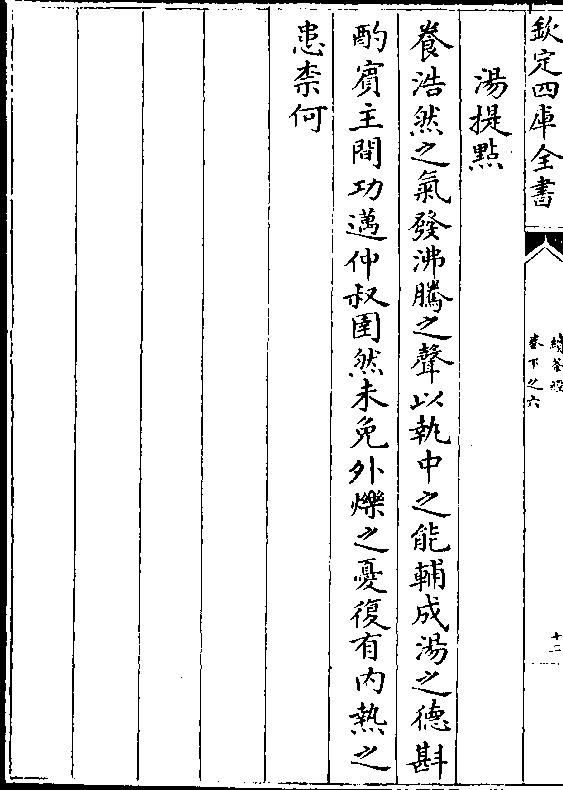 欽定四庫全書
續茶經
卷下之六
十二
湯提點
養浩然之氣發沸騰之聲以執中之能輔成湯之德斟
酌賓主間功邁仲叔圉然未免外爍之憂復有内熱之
患柰何